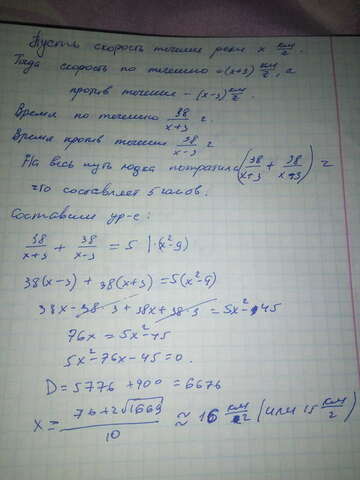 Пусть скорость течения реки x км/г.
Тогда скорость по течению -(x+3) км/г, а
против течения - (x-3) км/г.
Время по течению 38/(x+3) г.
Время против течения 38/(x-3) г
На весь путь лодка потратила (38/(x+3) + 38/(x-3)) г
что составляет 5 часов.
Составим ур-е:
38/(x+3) + 38/(x-3) = 5 |·(x²-9)
38(x-3) + 38(x+3) = 5(x²-9)
38x - 38·3 + 38x + 38·3 = 5x² - 45
76x = 5x² - 45
5x² - 76x - 45 = 0.
D = 5776 + 900 = 6676
x = (76+2√1669)/10 ≈ 16 км/г (или 15 км/г)